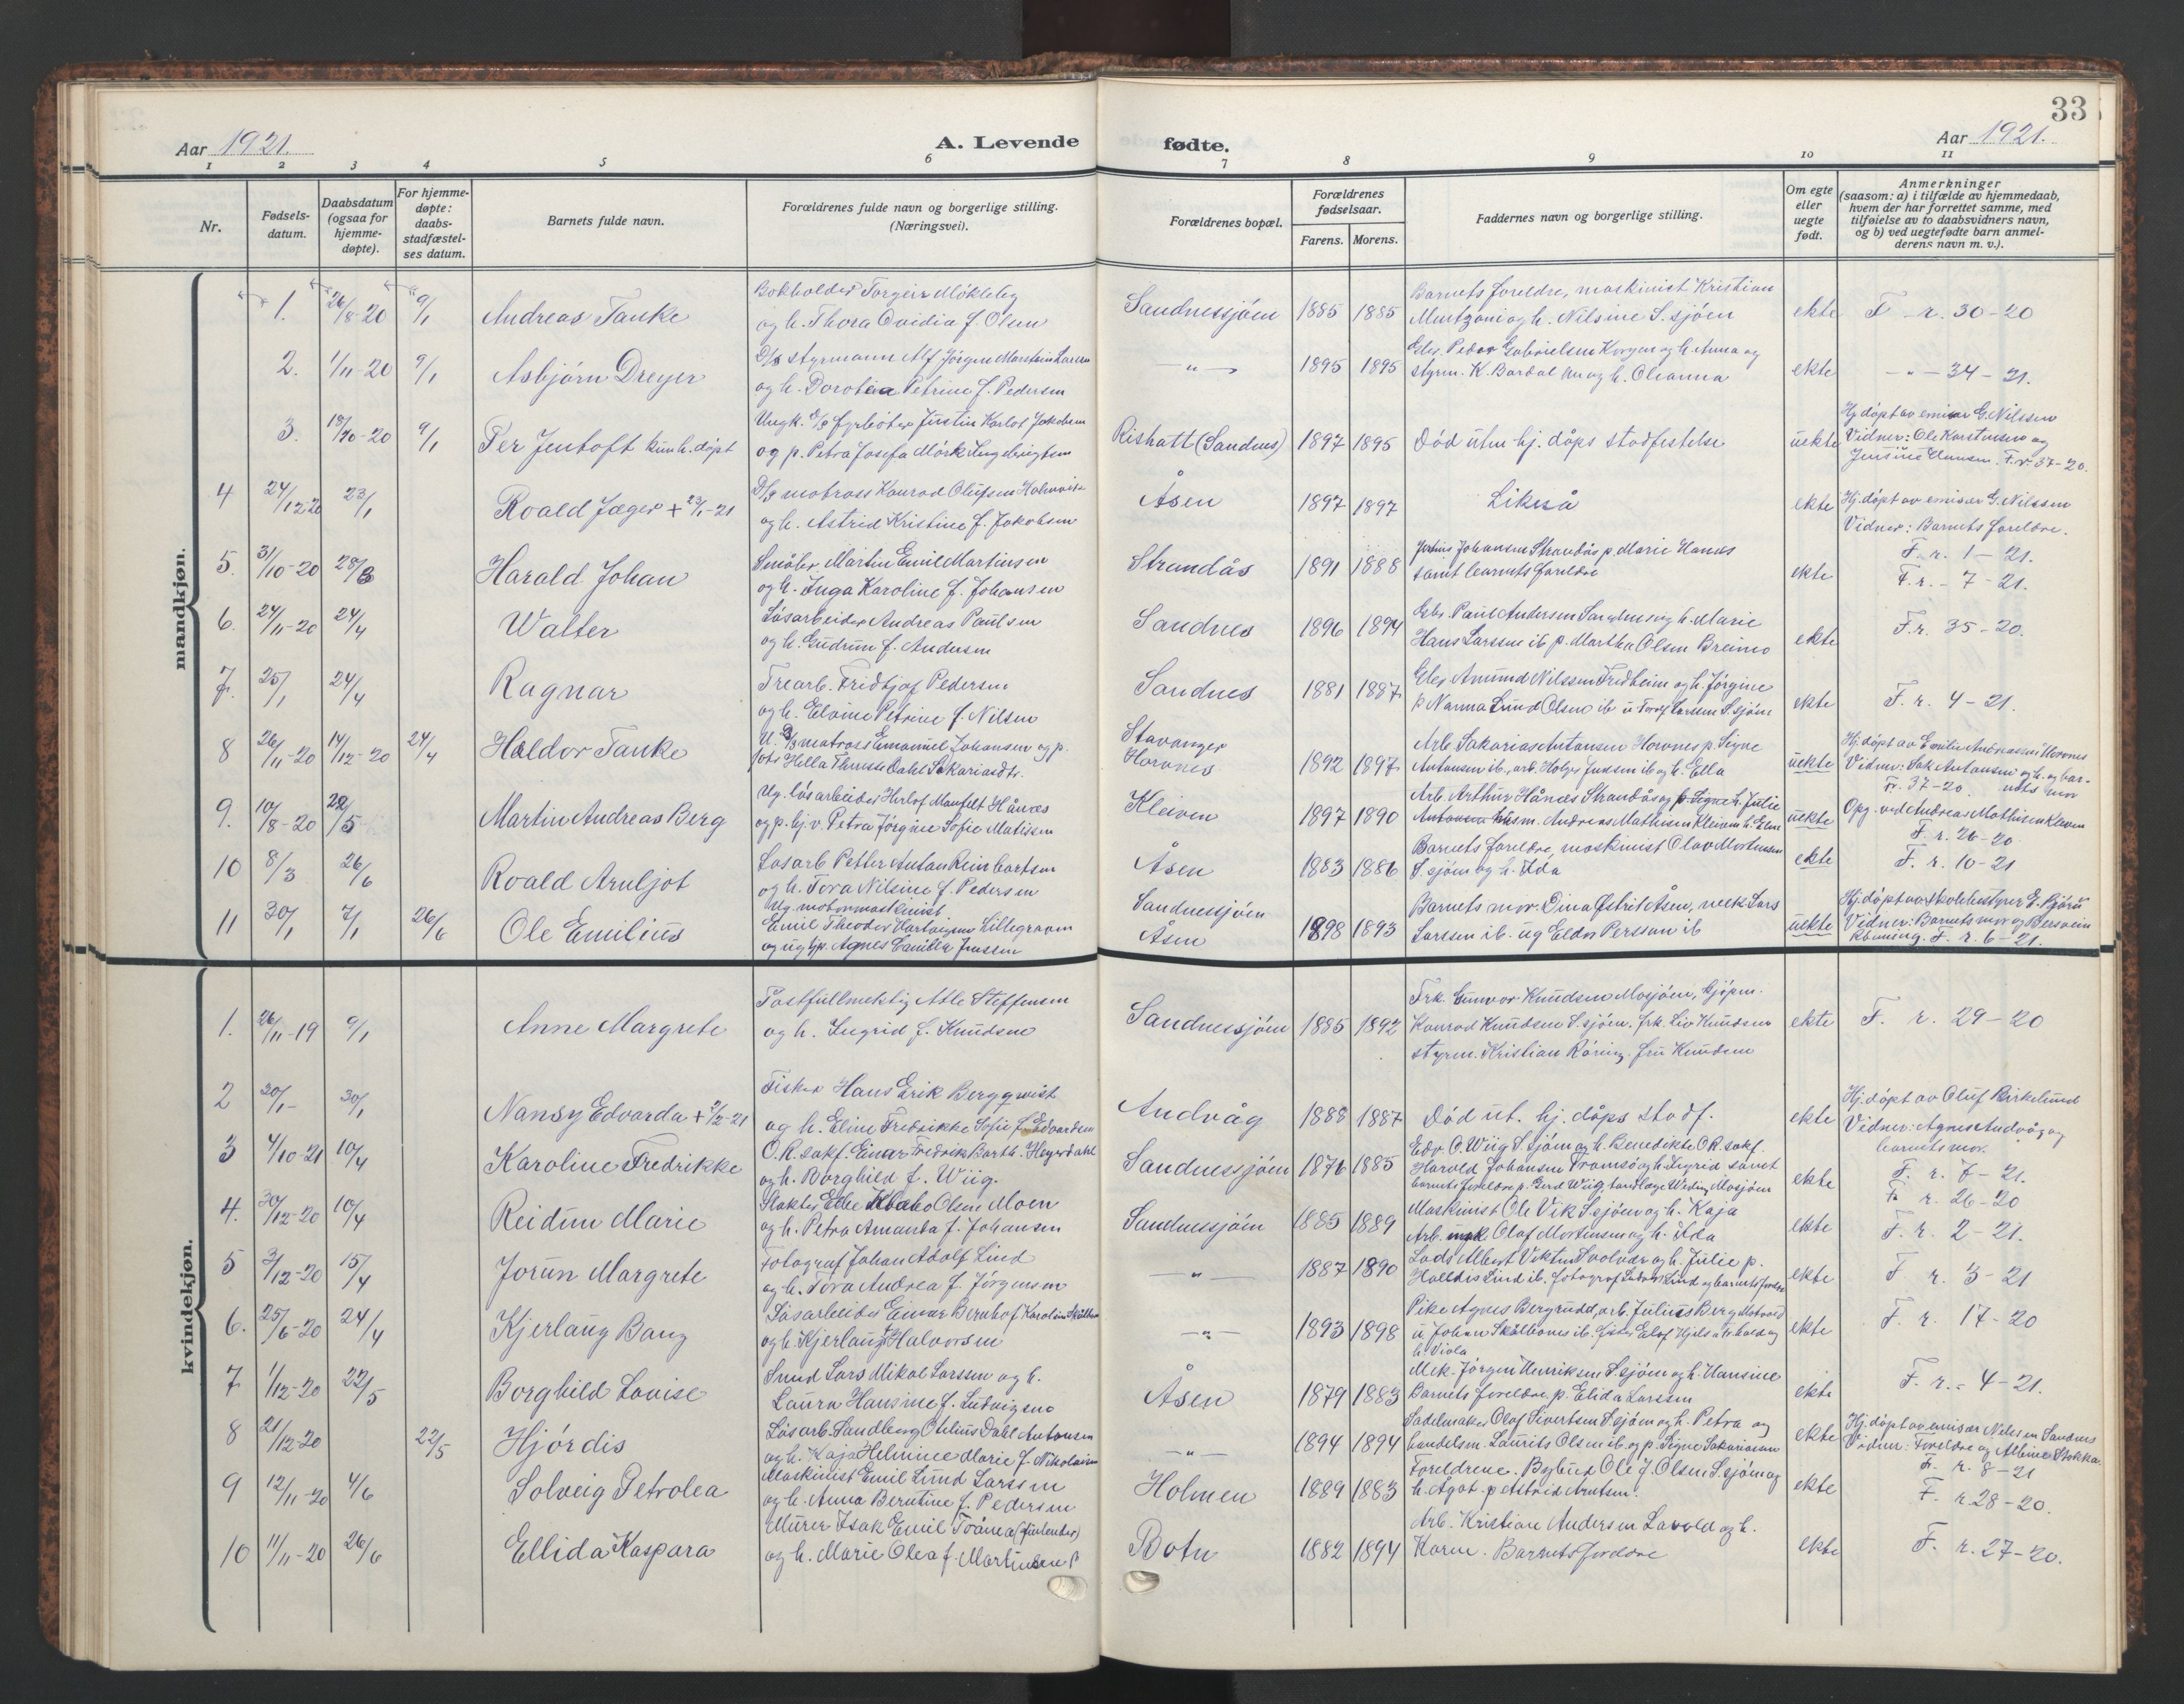 33
Aar 1921.
A. Levende
fødte.
Aar 1921.
1 2 3 4 5 6 7 8 9 10 11
Nr.
Fødsels-
datum.
Daabsdatum
(ogsaa for
hjemme-
døpte).
For hjemme-
døpte:
daabs-
stadfæstel-
ses datum.
Barnets fulde navn.
Forældrenes fulde navn og borgerlige stilling.
(Næringsvei).
Forældrenes bopæl.
Forældrenes
fødselsaar.
Farens. Morens.
Faddernes navn og borgerlige stilling.
Om egte
eller
uegte
født.
Anmerkninger
(saasom: a) i tilfælde av hjemmedaab,
hvem der har forrettet samme, med
tilføielse av to daabsvidners navn,
og b) ved uegtefødte barn anmel-
derens navn m. v.).
mandkjøn.
1. 26/8-20 9/1 Andreas Tanke
Bokholder Torgeir Møkleby
og h. Thora Ovidia f. Olsen
Sandnessjøen 1885 1885
Barnets foreldre, maskinist Kristian
og h. Nilsine S.sjøen
ekte F. r. 30-20
2. 1/11-20 9/1 Asbjørn Dreyer
D/s styrmann Alf Jørgen Larsen
og h. Dorotea Petrine f. Pedersen
-"- 1895 1895
Peder Gabrielsen og h. Anna og
styrm. K. Bardal og h. Oleanna
ekte -"- 34-21.
3. 18/10-20 9/1 Per Jentoft kun h. døpt
Ungk. D/s fyrbøter Justin Karlot Jakobsen
og p. Petra Josefa Mørk Ingebrigtsen
(Sandnes) 1897 1895
Død uten hj. dåps stadfestelse
uekte
Hj. døpt av emisær G. Nilssen
Vidner: Ole Karstensen og
F. r. 37-20.
4 24/12-20 23/1 Roald Jæger + 23/1-21
D/s matross Konrad Olufsen
og h. Astrid Kristine f. Jakobsen
Åsen 1897 1897
Likeså
ekte
Hj. døpt av emisær G. Nilssen
Vidner: Barnets foreldre.
F. r. 1-21.
5. 31/10-20 28/3 Harald Johan
Småbr. Martin Emil Martinsen
og h. Inga Karoline f. Johansen
Strandås 1891 1888
Johansen Strandås p. Marie
samt barnets foreldre
ekte F. r. - 7-21.
6. 24/11-20 24/4 Walter
Løsarbeider Andreas Paulsen
og h. Gudrun f. Andersen
Sandnes 1896 1894
Paul Andersen Sandnes og h. Marie
Hans Larssen ib p. Martha Olsen Breimo
ekte F. r. 35-20.
7. 25/1 24/4 Ragnar
Trearb. Fridtjof Pedersen
og h. Elvine Petrine f. Nilsen
Sandnes 1881 1887
Amund Nilssen Fredheim og h. Jørgine
p Nanna Lund Olsen ib u Larssen S.sjøen
ekte F. r. 4-21.
8 26/11-20 14/12-20 24/4 Haldor Tanke
U. D/s matross Emanuel Johansen og p.
Hella Dahl
Stavanger
Horvnes
1892 1897
Arb. Sakarias Antonsen Horvnes p. Signe
Antonsen ib., arb. Holger Jensen ib og h. Ella
uekte
Hj. døpt av Emilie
Vidner: Sak. Antonsen og h. og bar-
F. r. 37-20. nets mor
9. 10/8-20 22/5 Martin Andreas Berg
Ug. løsarbeider Herlof Hånes
og p. hj. v. Petra Jørgine Sofie Matisen
Kleiven 1897 1890
Arb. Arthur Hånes Strandås og h. Julie
Andreas Mathisen Kleiven h. Eline
uekte
Opg. ved Andreas Mathisen Kleiven
F. r. 26-20
10 8/3 26/6 Roald Arnljot
Løsarb Petter Anton Reinhartsen
og h. Tora Nilsine f. Pedersen
Åsen 1883 1886
Barnets foreldre, maskinist Olav Mortensen
S.sjøen og h. Ida
ekte F. r. 10-21
11 30/1 7/1 26/6 Ole Emilius
Ug. motormaskinist
Emil Theodor Hartvigsen
og ug hp. Agnes Camilla Jenssen
Sandnessjøen
Åsen
1898 1893
Barnets mor. Dina Åsen, Lars
Larssen ib. ug Persson ib
uekte
Hj. døpt av
Vidner: Barnets mor og
F. r. 6-21.
kvindekjøn.
1. 26/11-19 9/1 Anne Margrete
Postfullmektig Atle Steffensen
og h. Ingrid f. Knudsen
Sandnessjøen 1885 1892
Frk. Gunvor Knudsen Mosjøen, kjøpm.
Konrad Knudsen S.sjøen, frk. Liv Knudsen
styrm. Kristian Røring. fru Knudsen
ekte F. r. 29-20
2 20/1- 30/1 Nansy Edvarda + 2/2-21
Fisker Hans Erik Bergqwist
og h. Eline Fredrikke Sofie f. Edvardsen
Andvåg 1888 1887
Død ut. hj. dåps stadf.
ekte
Hj. døpt av Oluf Birkelund
Vidner: Agnes Andvåg og
barnets mor.
F. r. 8-21.
3 4/10-21 10/4 Karoline Fredrikke
O.R.sakf. Einar Fredrik Barth. Heyerdahl
og h. Borghild f. Wiig.
Sandnessjøen 1876 1885
Edv. O. Wiig S.sjøen og h. Benedikte O.R.sakf.
Harald Johansen Tromsø og h. Sigrid samt
barnets foreldre p. Gerd Wiig, tandlæge Mosjøen
ekte F. r. 26-20
4. 30/12-20 10/4 Reidun Marie
Slakter Olsen Moen
og h. Petra Amanda f. Johansen
Sandnessjøen 1885 1889
Maskinist Ole Vik S.sjøen og h. Kaja
Arb. Olaf Mortensen og h. Ida
ekte F. r. 2-21.
5 3/12-20 15/4 Jorun Margrete
Fotograf Johan Adolf Lind
og h. Tora Andrea f. Jørgensen
-"- 1887 1890
Lods Albert Viktor Svolvær og h. Julie p.
Halldis Lind ib. fotograf Lind og barnets foreldre
ekte F. r. 3-21
6. 25/6-20 24/4 Kjerlaug Bang
Løsarbeider Einar Bernhof
og h. Kjerlaug f. Halvorsen
-"- 1893 1898
Pike Agnes Bergrudd, arb. Julius Berg
u. Johan ib. fisker Elof
h. Viola
ekte F. r. 17-20
7 1/12-20 22/5 Borghild Lovise
Smed Lars Mikal Larssen og h.
Laura Hansine f. Ludvigsen
Åsen 1879 1883
Mek. Jørgen Henriksen S.sjøen og h. Hansine
Barnets foreldre, p. Elida Larssen
ekte F. r. - 4-21.
8 21/12-20 22/5 Hjørdis
Løsarb. Sandberg Otelius Dahl Antonsen
og h. Kaja Helmine Marie f. Nikolaisen
-"- 1894 1894
Sadelmaker Olaf Sivertsen S.sjøen og h. Petra og
handelsm. Laurits Olsen ib. og p. Signe Sakariassen
ekte
Hj. døpt av emisær Nilssen Sandnes
Vidner: Foreldre og Albine Stokka.
F. r. 8-21
9 12/11-20 4/6 Solveig Petrolea
Maskinist Emil Lund Larssen
og h. Anna Berntine f. Pedersen
Holmen 1889 1883
Foreldrene. Bybud Ole J. Olsen S.sjøen og
h. Ågot p Astrid Arntsen.
ekte F. r. 28-20.
10 11/11-20 26/6 Ellida Kaspara
Murer Isak Emil (finlender)
og h. Marie Olea f. Martinsen
Botn 1882 1894
Arb. Kristian Andersen og h.
Karen. Barnets foreldre
ekte F. r. 27-20.